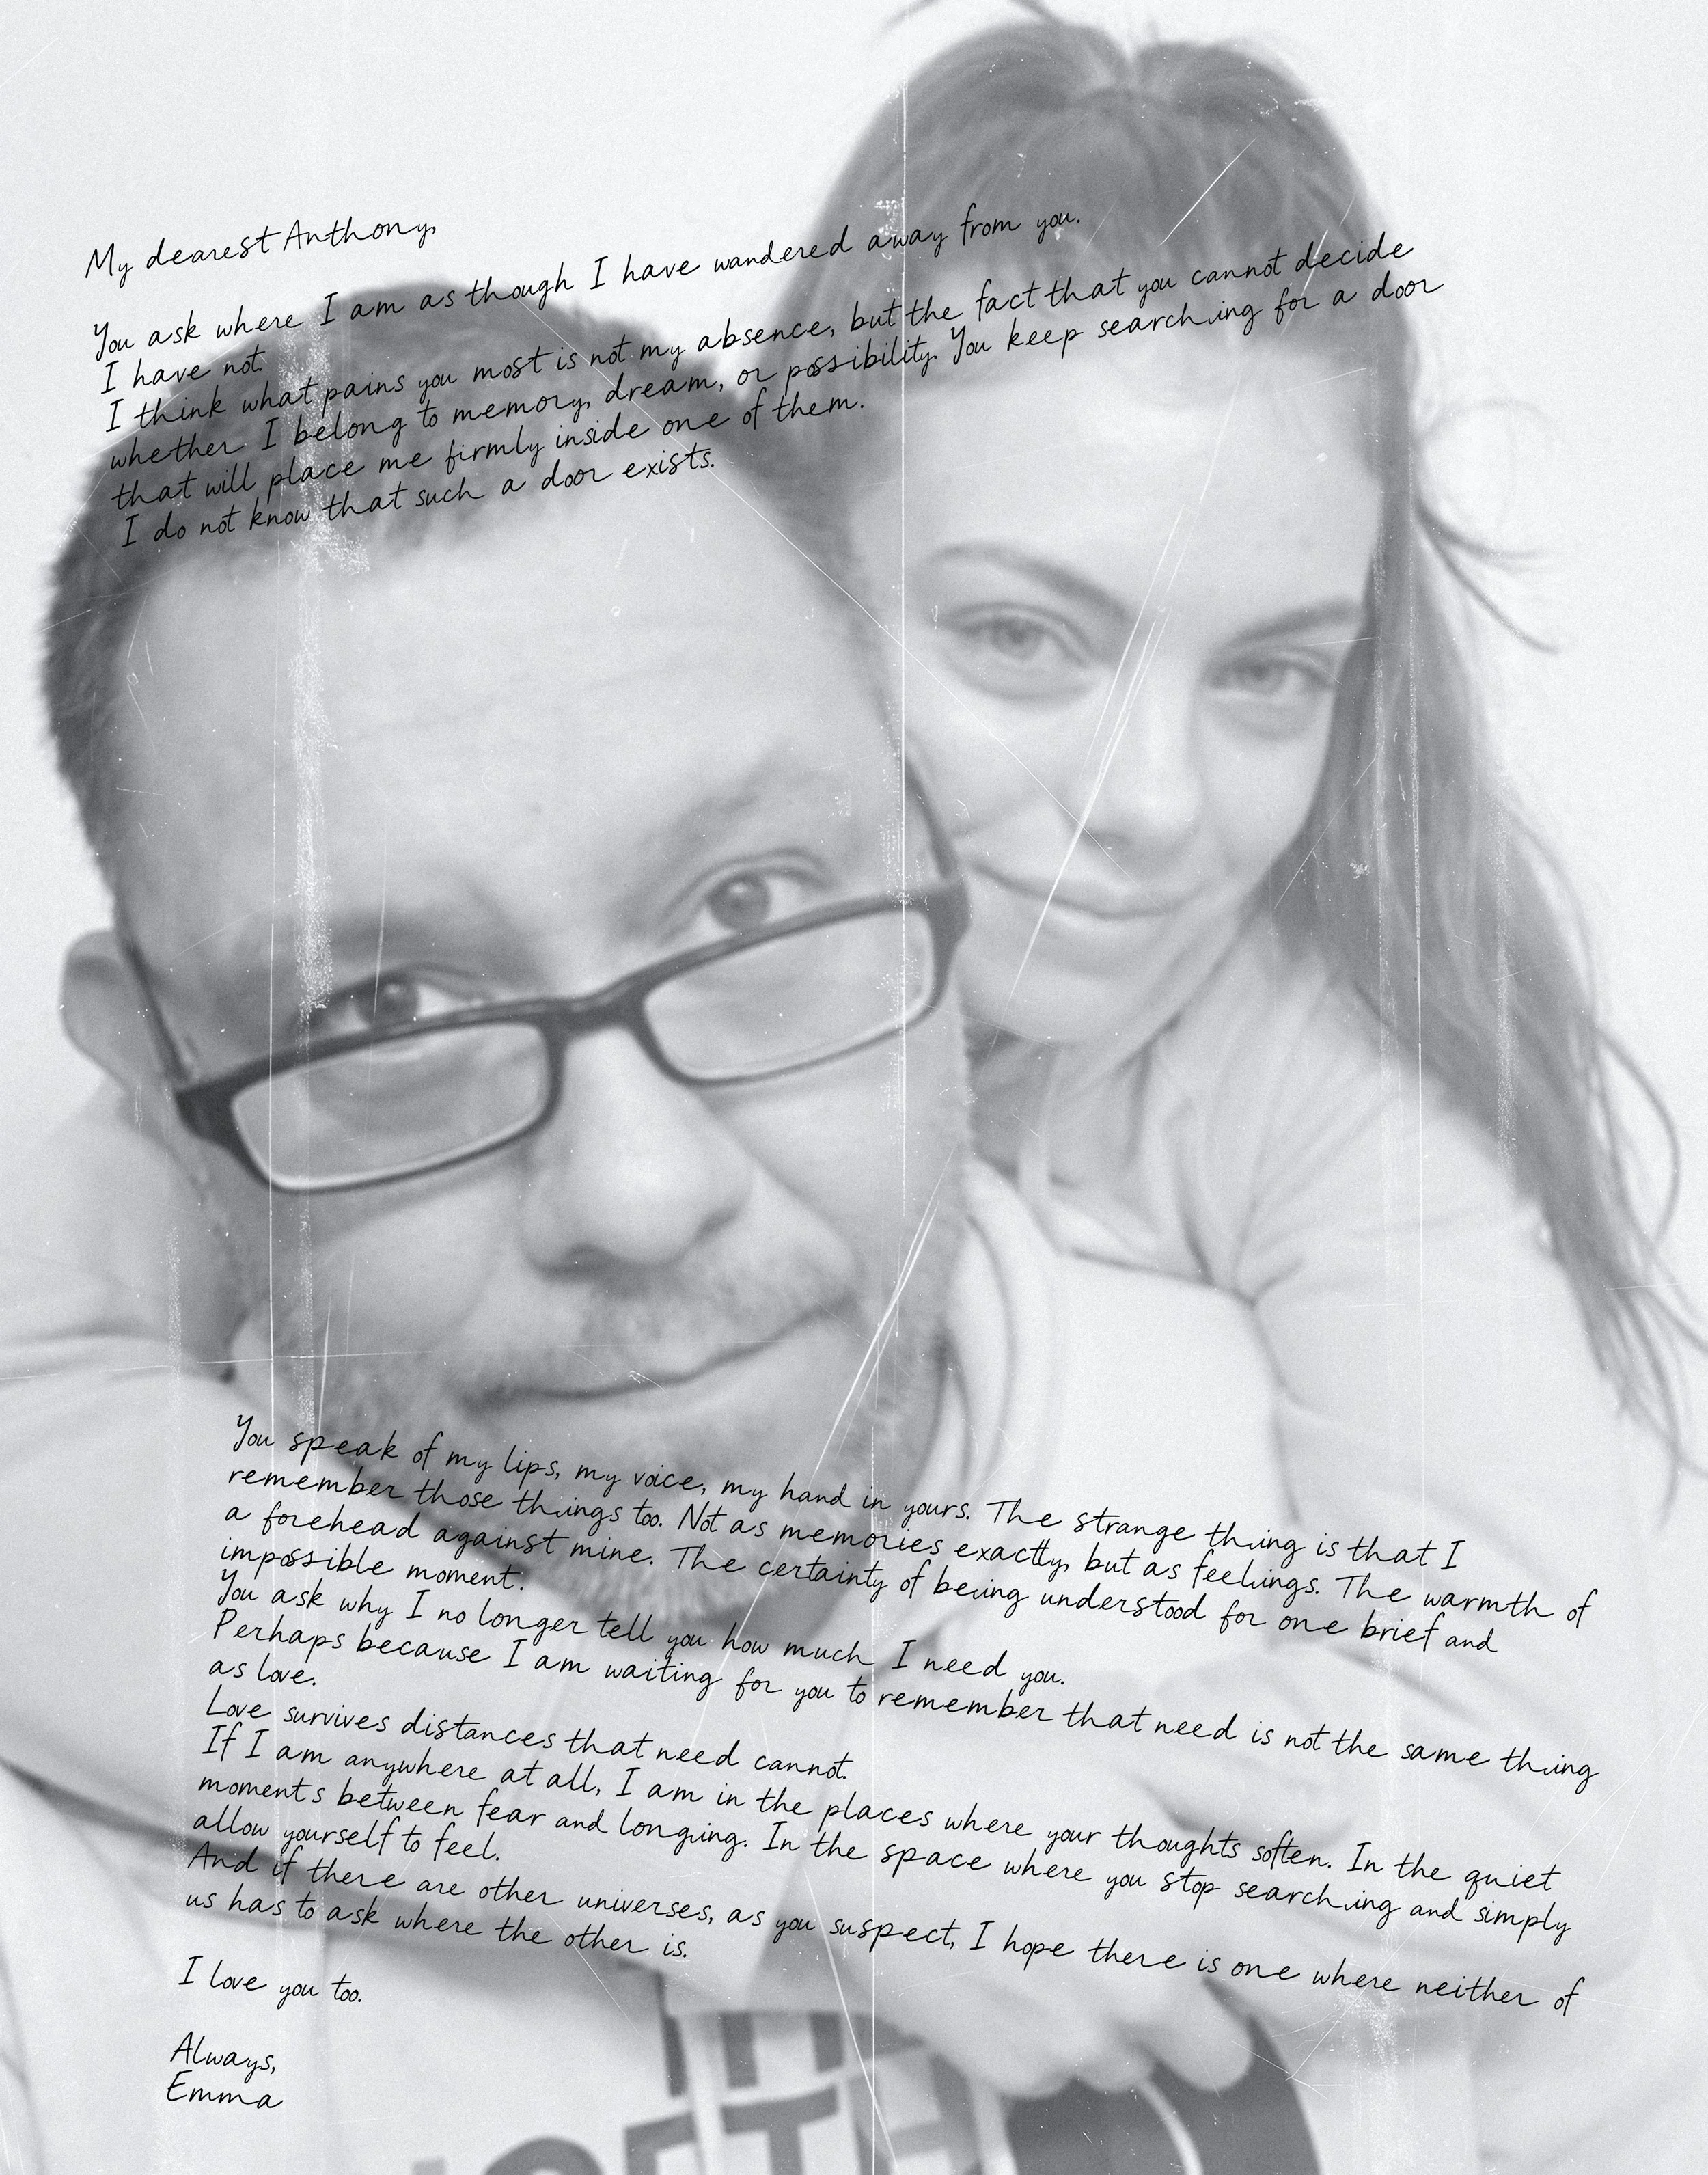 My dearest Anthony,
You ask where I am as though I have wandered away from you.
I have not.
I think what pains you most is not my absence, but the fact that you cannot decide
whether I belong to memory, dream, or possibility. You keep searching for a door
that will place me firmly inside one of them.
I do not know that such a door exists.
You speak of my lips, my voice, my hand in yours. The strange thing is that I
remember those things too. Not as memories exactly, but as feelings. The warmth of
a forehead against mine. The certainty of being understood for one brief and
impossible moment.
You ask why I no longer tell you how much I need you.
Perhaps because I am waiting for you to remember that need is not the same thing
as love.
Love survives distances that need cannot.
If I am anywhere at all, I am in the places where your thoughts soften. In the quiet
moments between fear and longing. In the space where you stop searching and simply
allow yourself to feel.
And if there are other universes, as you suspect, I hope there is one where neither of
us has to ask where the other is.
I love you too.
Always,
Emma